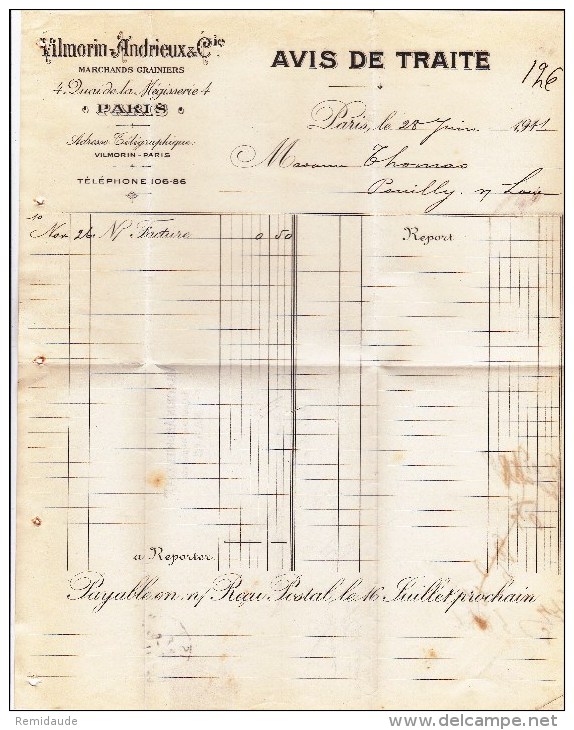 Vilmorin-Andrieux & Cie
MARCHANDS GRAINIERS
4, Quai de la Mégisserie, 4
PARIS
Adresse Télégraphique:
VILMORIN-PARIS
TÉLÉPHONE 106-86
AVIS DE TRAITE
126
Paris, le 28 Juin 1911
Madame Thomas
Pouilly s/ Loire
10
Nov 26 N/ Facture 0 50
Report
à Reporter
Payable en n/ Reçu Postal, le 16 Juillet prochain
Remidaude
www.delcampe.net